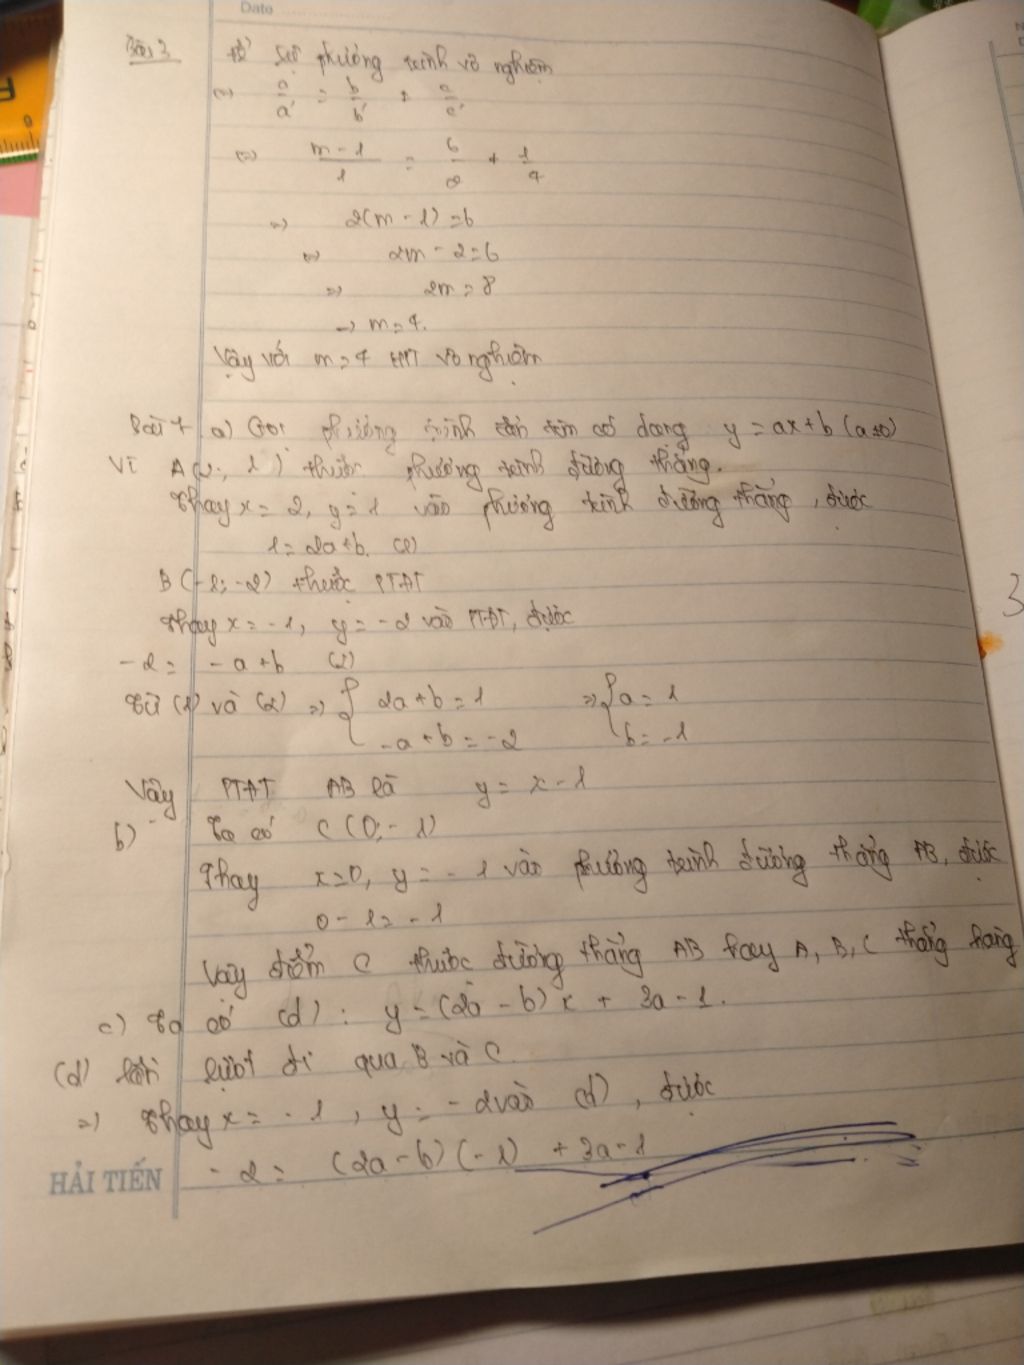 Date
Bài 3 Hệ phương trình vô nghiệm
<=> a/a' = b/b' ≠ c/c'
<=> m-1/1 = 6/2 ≠ 1/4
=> 2(m-1)=6
<=> 2m-2=6
=> 2m=8
=> m=4.
Vậy với m=4 HPT vô nghiệm
Bài 4 a) Gọi phương trình cần tìm có dạng y=ax+b (a≠0)
Vì A(2; 1) thuộc phương trình đường thẳng.
Thay x=2, y=1 vào phương trình đường thẳng, được
1=2a+b. (1)
B(-1; -2) thuộc PTĐT
Thay x=-1, y=-2 vào PTĐT, được
-2= -a+b (2)
Từ (1) và (2) => { 2a+b=1 => { a=1
-a+b=-2 b=-1
Vậy PTĐT AB là y=x-1
b) Ta có C(0;-1)
Thay x=0, y=-1 vào phương trình đường thẳng AB, được
0-1=-1
Vậy điểm C thuộc đường thẳng AB hay A, B, C thẳng hàng
c) Ta có (d): y=(2a-b)x+3a-1.
(d) lần lượt đi qua B và C
=> Thay x=-1, y=-2 vào (d), được
-2= (2a-b)(-1)+3a-1
HẢI TIẾN
3